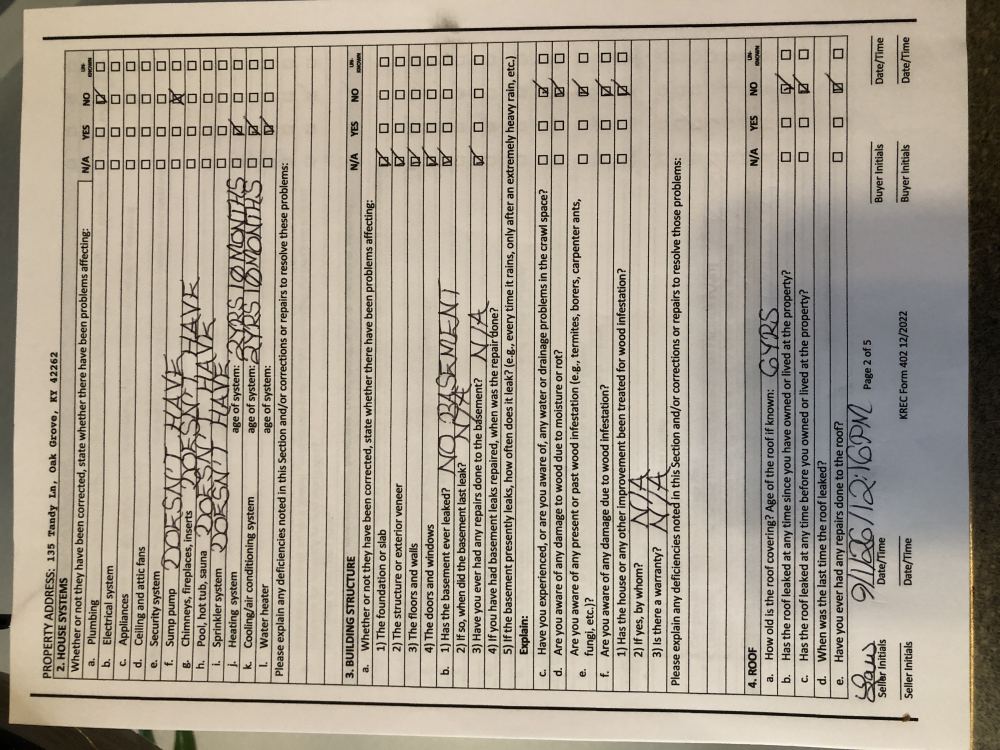 PROPERTY ADDRESS: 135 Tandy Ln, Oak Grove, KY 42262
2. HOUSE SYSTEMS
Whether or not they have been corrected, state whether there have been problems affecting: N/A YES NO UN-KNOWN
a. Plumbing
b. Electrical system
c. Appliances
d. Ceiling and attic fans
e. Security system
f. Sump pump DOESN'T HAVE
g. Chimneys, fireplaces, inserts DOESN'T HAVE
h. Pool, hot tub, sauna DOESN'T HAVE
i. Sprinkler system DOESN'T HAVE
j. Heating system age of system: 2YRS 10 MONTHS
k. Cooling/air conditioning system age of system: 2YRS 10 MONTHS
l. Water heater age of system:
Please explain any deficiencies noted in this Section and/or corrections or repairs to resolve these problems:
3. BUILDING STRUCTURE N/A YES NO UN-KNOWN
a. Whether or not they have been corrected, state whether there have been problems affecting:
1) The foundation or slab
2) The structure or exterior veneer
3) The floors and walls
4) The doors and windows
b. 1) Has the basement ever leaked? NO BASEMENT
2) If so, when did the basement last leak? N/A
3) Have you ever had any repairs done to the basement? N/A
4) If you have had basement leaks repaired, when was the repair done?
5) If the basement presently leaks, how often does it leak? (e.g., every time it rains, only after an extremely heavy rain, etc.)
Explain:
c. Have you experienced, or are you aware of, any water or drainage problems in the crawl space?
d. Are you aware of any damage to wood due to moisture or rot?
e. Are you aware of any present or past wood infestation (e.g., termites, borers, carpenter ants,
fungi, etc.)?
f. Are you aware of any damage due to wood infestation?
1) Has the house or any other improvement been treated for wood infestation?
2) If yes, by whom? N/A
3) Is there a warranty? N/A
Please explain any deficiencies noted in this Section and/or corrections or repairs to resolve those problems:
4. ROOF N/A YES NO UN-KNOWN
a. How old is the roof covering? Age of the roof if known: 6YRS
b. Has the roof leaked at any time since you have owned or lived at the property?
c. Has the roof leaked at any time before you owned or lived at the property?
d. When was the last time the roof leaked?
e. Have you ever had any repairs done to the roof?
Seller Initials Date/Time Page 2 of 5 Buyer Initials Date/Time
Seller Initials Date/Time KREC Form 402 12/2022 Buyer Initials Date/Time